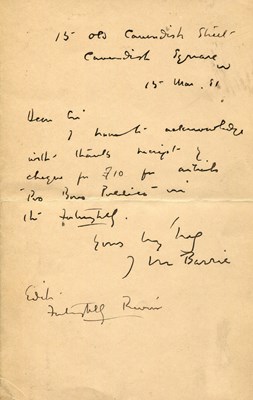 15 Old Cavendish Street
Cavendish Square
W
15 Mar.
Dear Sir
I have to acknowledge
with thanks receipt of
cheque for £10 for article
"Pro Bono Publico" in
the Fortnightly.
Yours truly
J M Barrie
Editor
Fortnightly Review